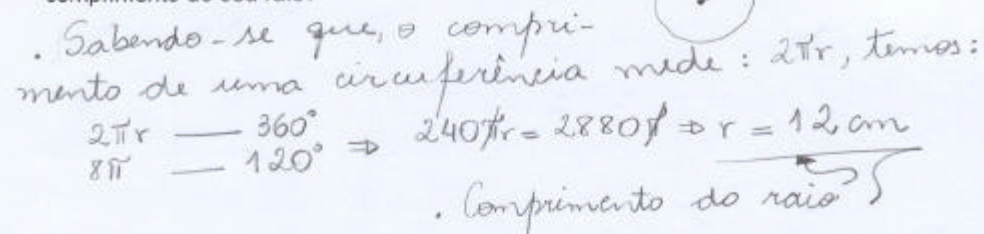 . Sabendo-se que, o compri-
mento de uma circuferência mede : 2πr, temos:
2πr —— 360°
8π —— 120° ⇒ 240πr = 2880π ⇒ r = 12 cm
. Comprimento do raio